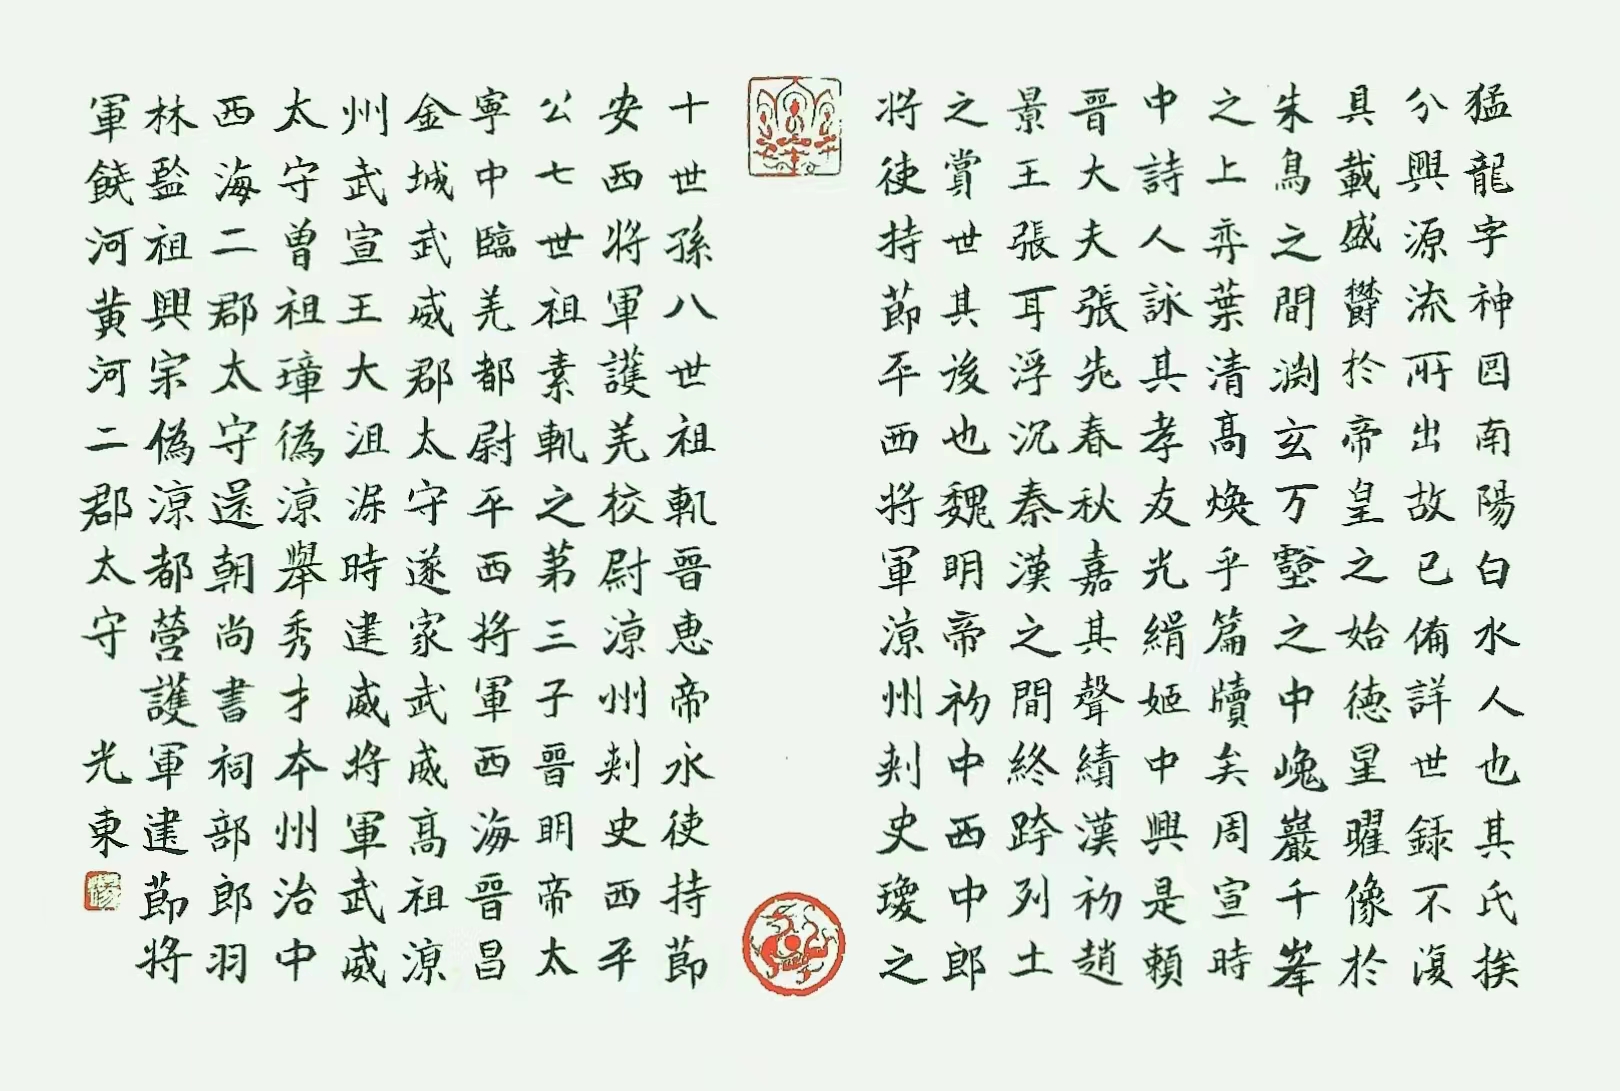 猛龍字神囧南陽白水人也其氏族
分興源流所出故已備詳世録不復
具載盛欝於帝皇之始德星曜像於
朱鳥之間渕玄万壑之中巉巖千峯
之上弈葉清高煥乎篇牘矣周宣時
中詩人詠其孝友光緝姬中興是賴
晉大夫張老春秋嘉其聲績漢初趙
景王張耳浮沉秦漢之間終跨列土
之賞世其後也魏明帝初中西中郎
将使持莭平西将軍涼州刾史瓊之
十世孫八世祖軌晉惠帝永使持莭
安西将軍護羌校尉涼州刾史西平
公七世祖素軌之苐三子晉明帝太
寧中臨羌都尉平西将軍西海晉昌
金城武威郡太守遂家武威高祖涼
州武宣王大沮渠時建威将軍武威
太守曽祖璋偽涼舉秀才本州治中
西海二郡太守還朝尚書祠部郎羽
林監祖興宗偽涼都營護軍建莭将
軍饒河黃河二郡太守 光東